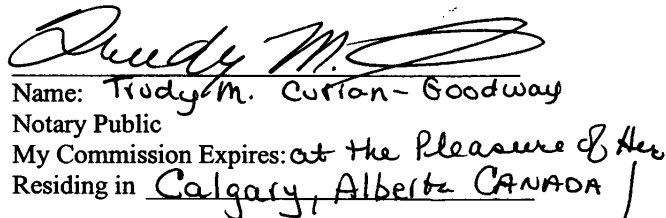 Trudy M.
Name: Trudy M. Curran-Goodway
Notary Public
My Commission Expires: at the Pleasure of Her
Residing in Calgary, Alberta CANADA